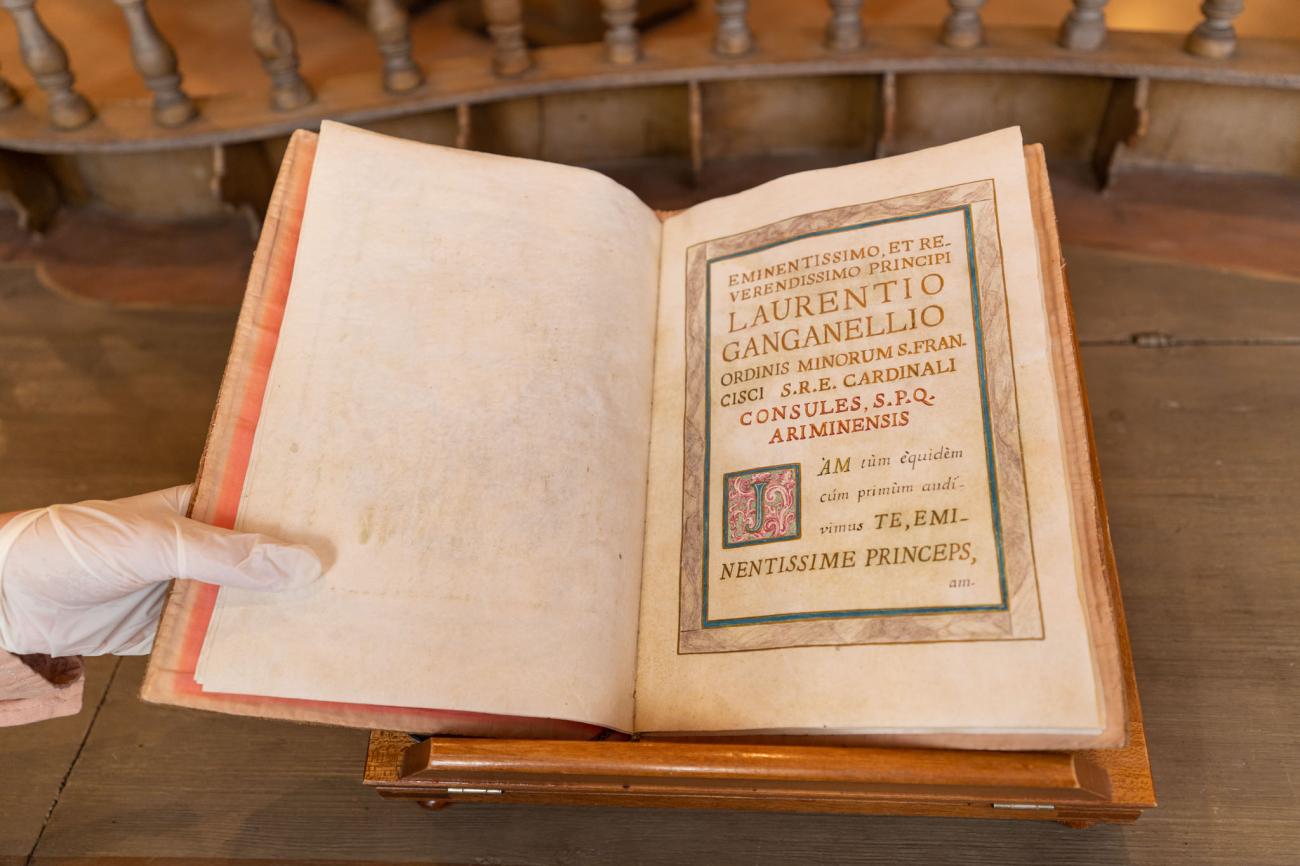 EMINENTISSIMO, ET RE-
VERENDISSIMO PRINCIPI
LAURENTIO
GANGANELLIO
ORDINIS MINORUM S.FRAN.
CISCI S.R.E. CARDINALI
CONSULES, S.P.Q.
ARIMINENSIS
JAM tùm èquidèm
cúm primùm audí-
vimus TE, EMI-
NENTISSIME PRINCEPS,
am-